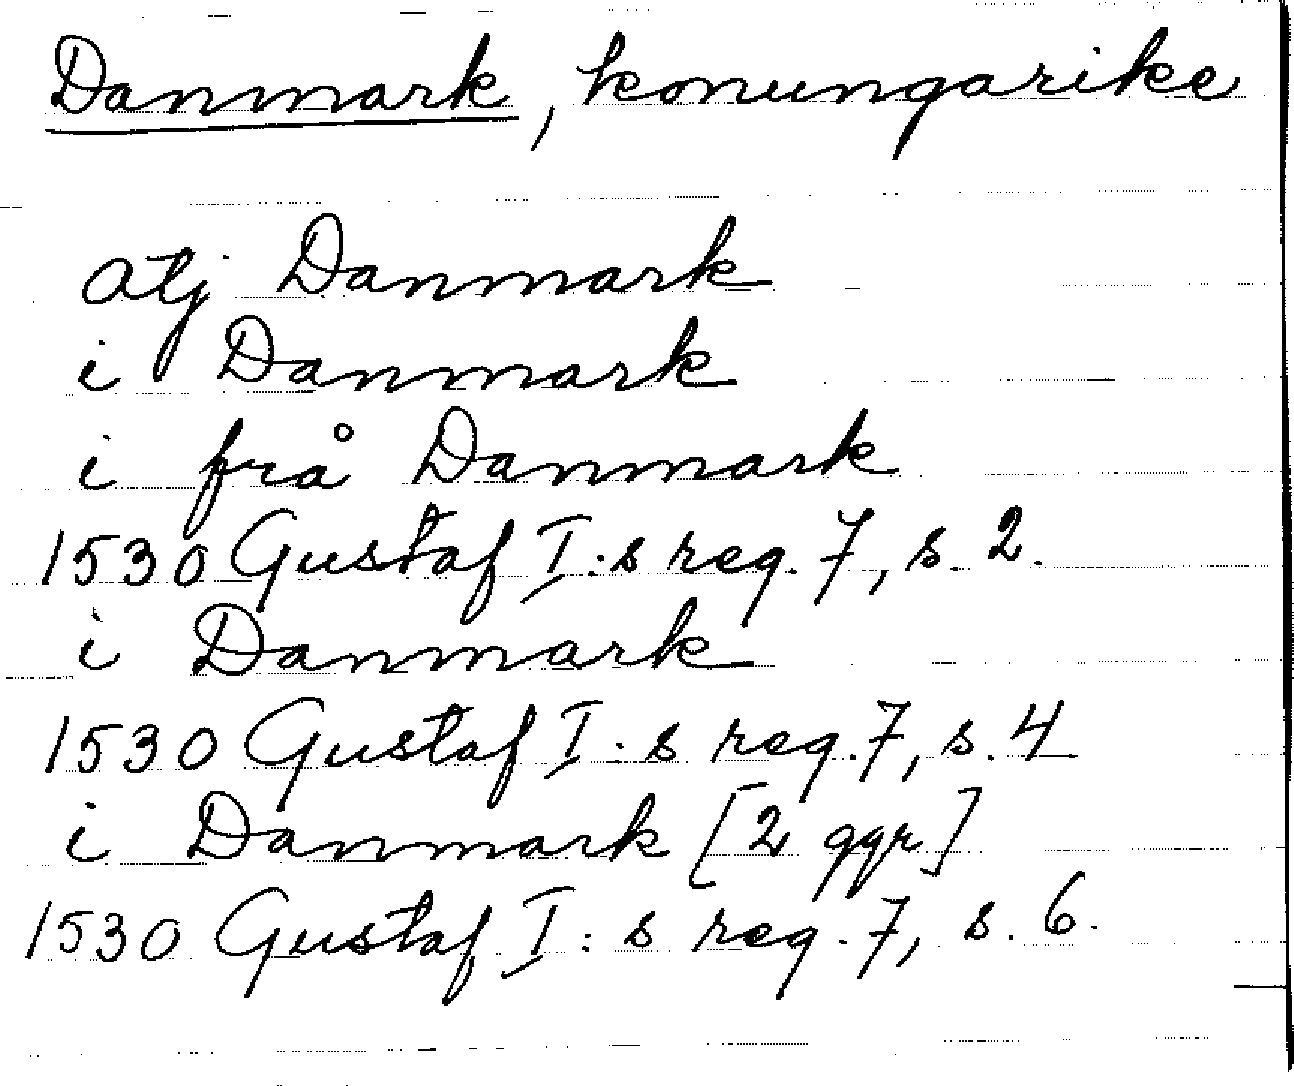 Danmark, konungarike
atj Danmark
i Danmark
i frå Danmark
1530 Gustaf I:s reg. 7, s. 2.
i Danmark
1530 Gustaf I:s reg. 7, s. 4
i Danmark [2 ggr]
1530 Gustaf I:s reg. 7, s. 6.